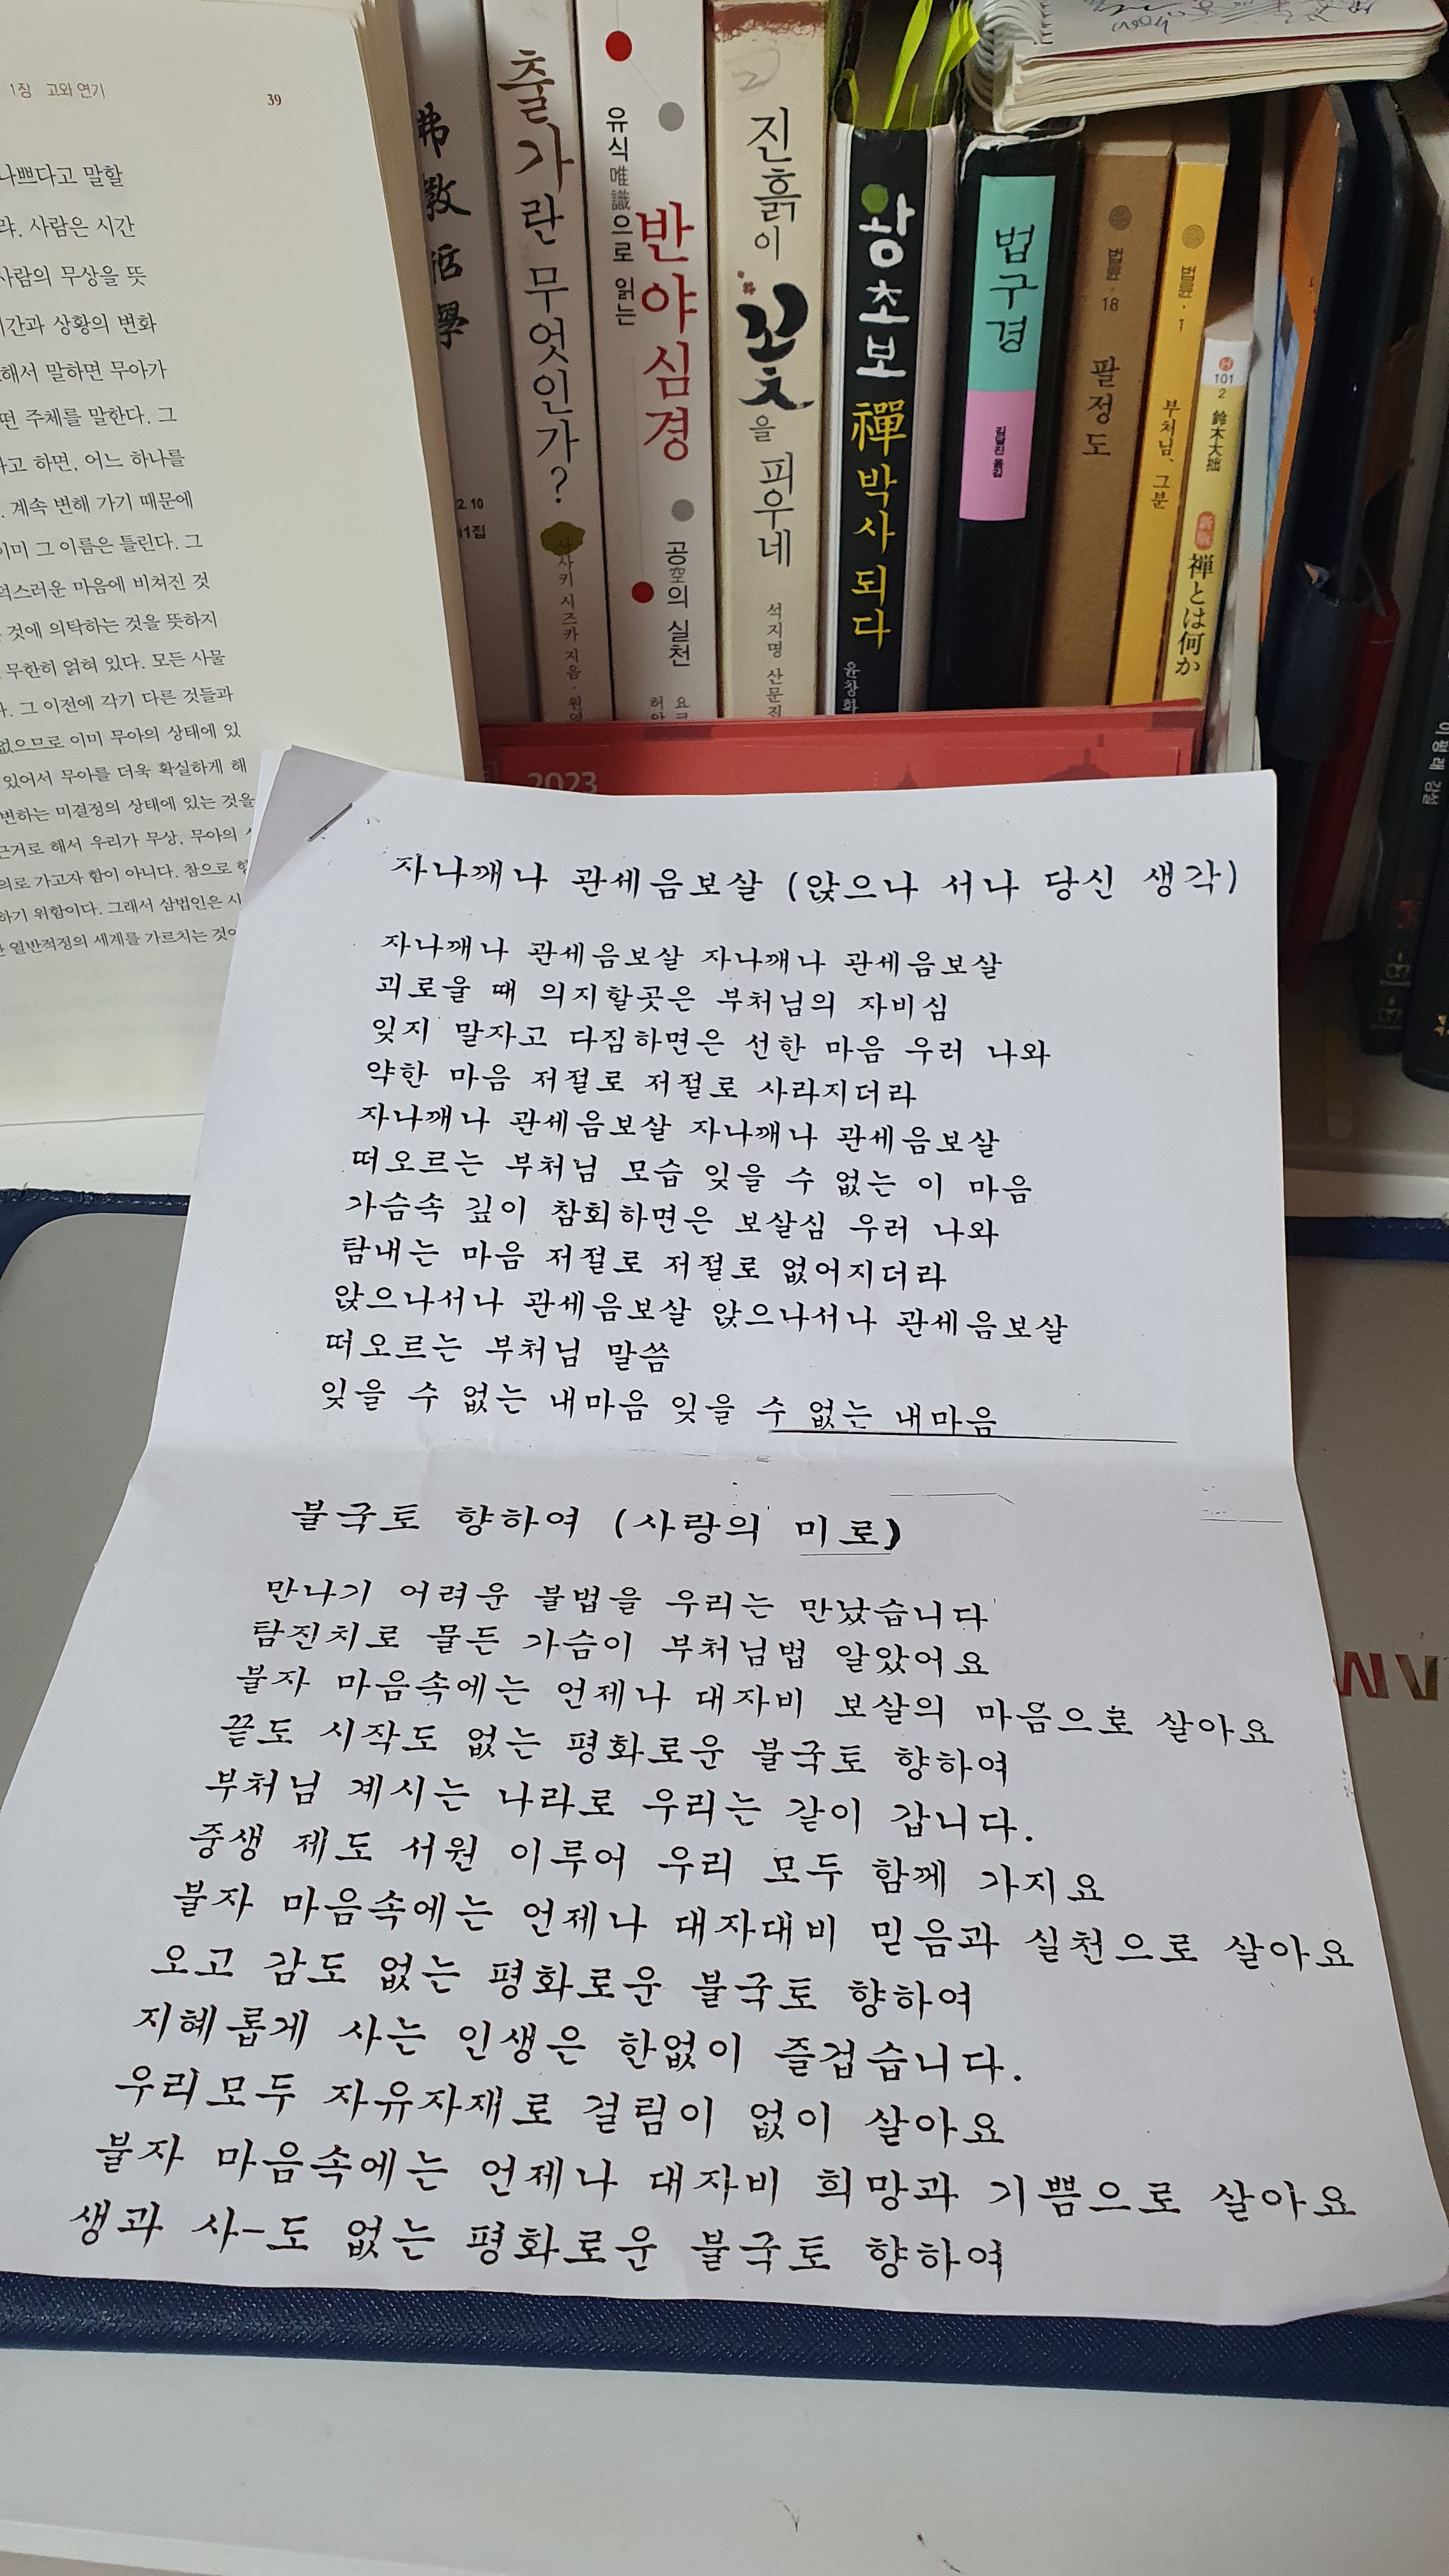 1장 고와 연기
39
나쁘다고 말할
사람은 시간
사람의 무상을 뜻
상황의 변화
해서 말하면 무아가
주체를 말한다. 그
하면, 어느 하나를
계속 변해 가기 때문에
이미 그 이름은 틀린다. 그
마음에 비쳐진 것
것에 의탁하는 것을 뜻하지
무한히 얽혀 있다. 모든 사물
그 이전에 각기 다른 것들과
없으므로 이미 무아의 상태에 있
있어서 무아를 더욱 확실하게 해
변하는 미결정의 상태에 있는 것을
근거로 해서 우리가 무상, 무아의
가고자 함이 아니다. 참으로
하기 위함이다. 그래서 삼법인은 시
열반적정의 세계를 가르치는
佛敎活學
2.10
11집
출가란 무엇인가?
사사키 시즈카 지음
유식唯識으로 읽는
반야심경
공空의 실천
진흙이 꽃을 피우네
석지명 산문집
왕초보 禪박사 되다
윤창화
법구경
김달진 옮김
법륜·18
팔정도
법륜·1
부처님, 그분
101
2
鈴木大拙
新版
禅とは何か
이평래 강설
2023
자나깨나 관세음보살 (앉으나 서나 당신 생각)
자나깨나 관세음보살 자나깨나 관세음보살
괴로울 때 의지할곳은 부처님의 자비심
잊지 말자고 다짐하면은 선한 마음 우러 나와
약한 마음 저절로 저절로 사라지더라
자나깨나 관세음보살 자나깨나 관세음보살
떠오르는 부처님 모습 잊을 수 없는 이 마음
가슴속 깊이 참회하면은 보살심 우러 나와
탐내는 마음 저절로 저절로 없어지더라
앉으나서나 관세음보살 앉으나서나 관세음보살
떠오르는 부처님 말씀
잊을 수 없는 내마음 잊을 수 없는 내마음
불국토 향하여 (사랑의 미로)
만나기 어려운 불법을 우리는 만났습니다
탐진치로 물든 가슴이 부처님법 알았어요
불자 마음속에는 언제나 대자비 보살의 마음으로 살아요
끝도 시작도 없는 평화로운 불국토 향하여
부처님 계시는 나라로 우리는 같이 갑니다.
중생 제도 서원 이루어 우리 모두 함께 가지요
불자 마음속에는 언제나 대자대비 믿음과 실천으로 살아요
오고 감도 없는 평화로운 불국토 향하여
지혜롭게 사는 인생은 한없이 즐겁습니다.
우리모두 자유자재로 걸림이 없이 살아요
불자 마음속에는 언제나 대자비 희망과 기쁨으로 살아요
생과 사-도 없는 평화로운 불국토 향하여